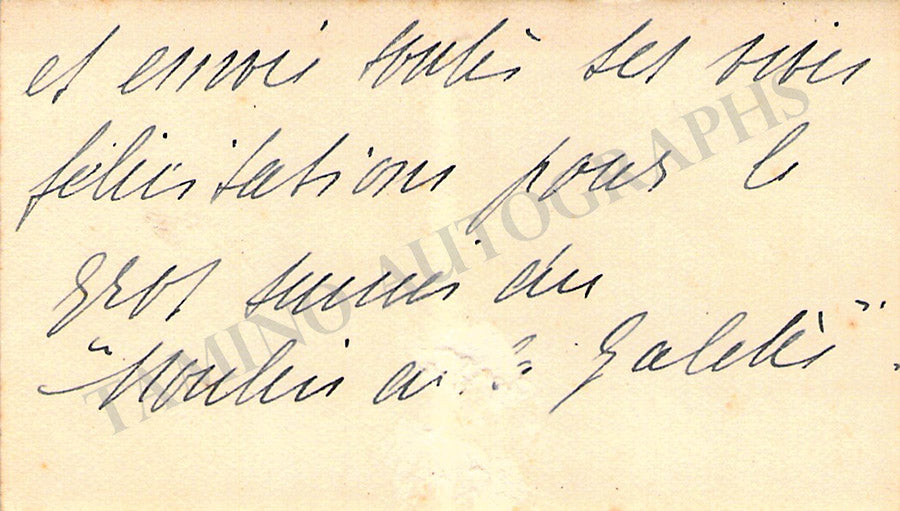 et envoie toutes ses vives
félicitations pour le
gros succès du
"Moulin de la Galette".
TAMINO AUTOGRAPHS